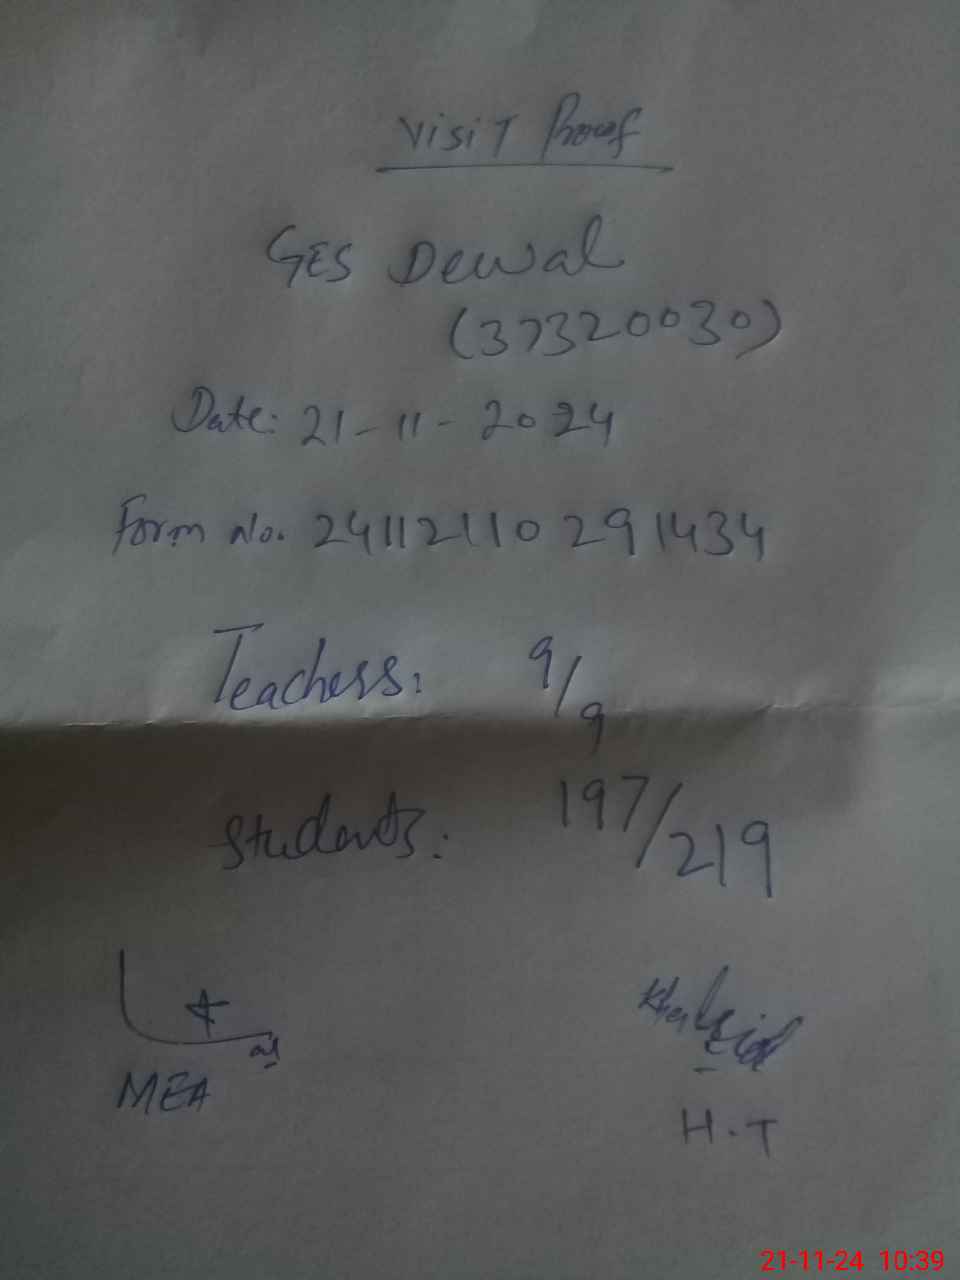 Visit Proof
GES Dewal
(37320030)
Date: 21-11-2024
Form No. 241121110291434
Teachers: 9/9
Students: 197/219
MEA
H.T
21-11-24 10:39